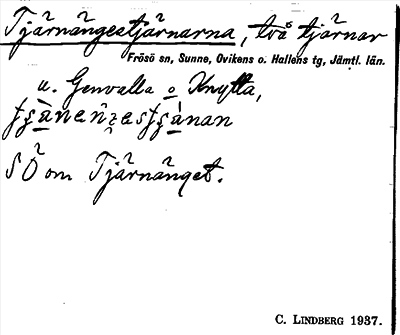 Tjärnängestjärnarna, två tjärnar
Frösö sn, Sunne, Ovikens o. Hallens tg, Jämtl. län.
u. Genvalla o Knytta,
S Ö om Tjärnänget.
C. LINDBERG 1937.